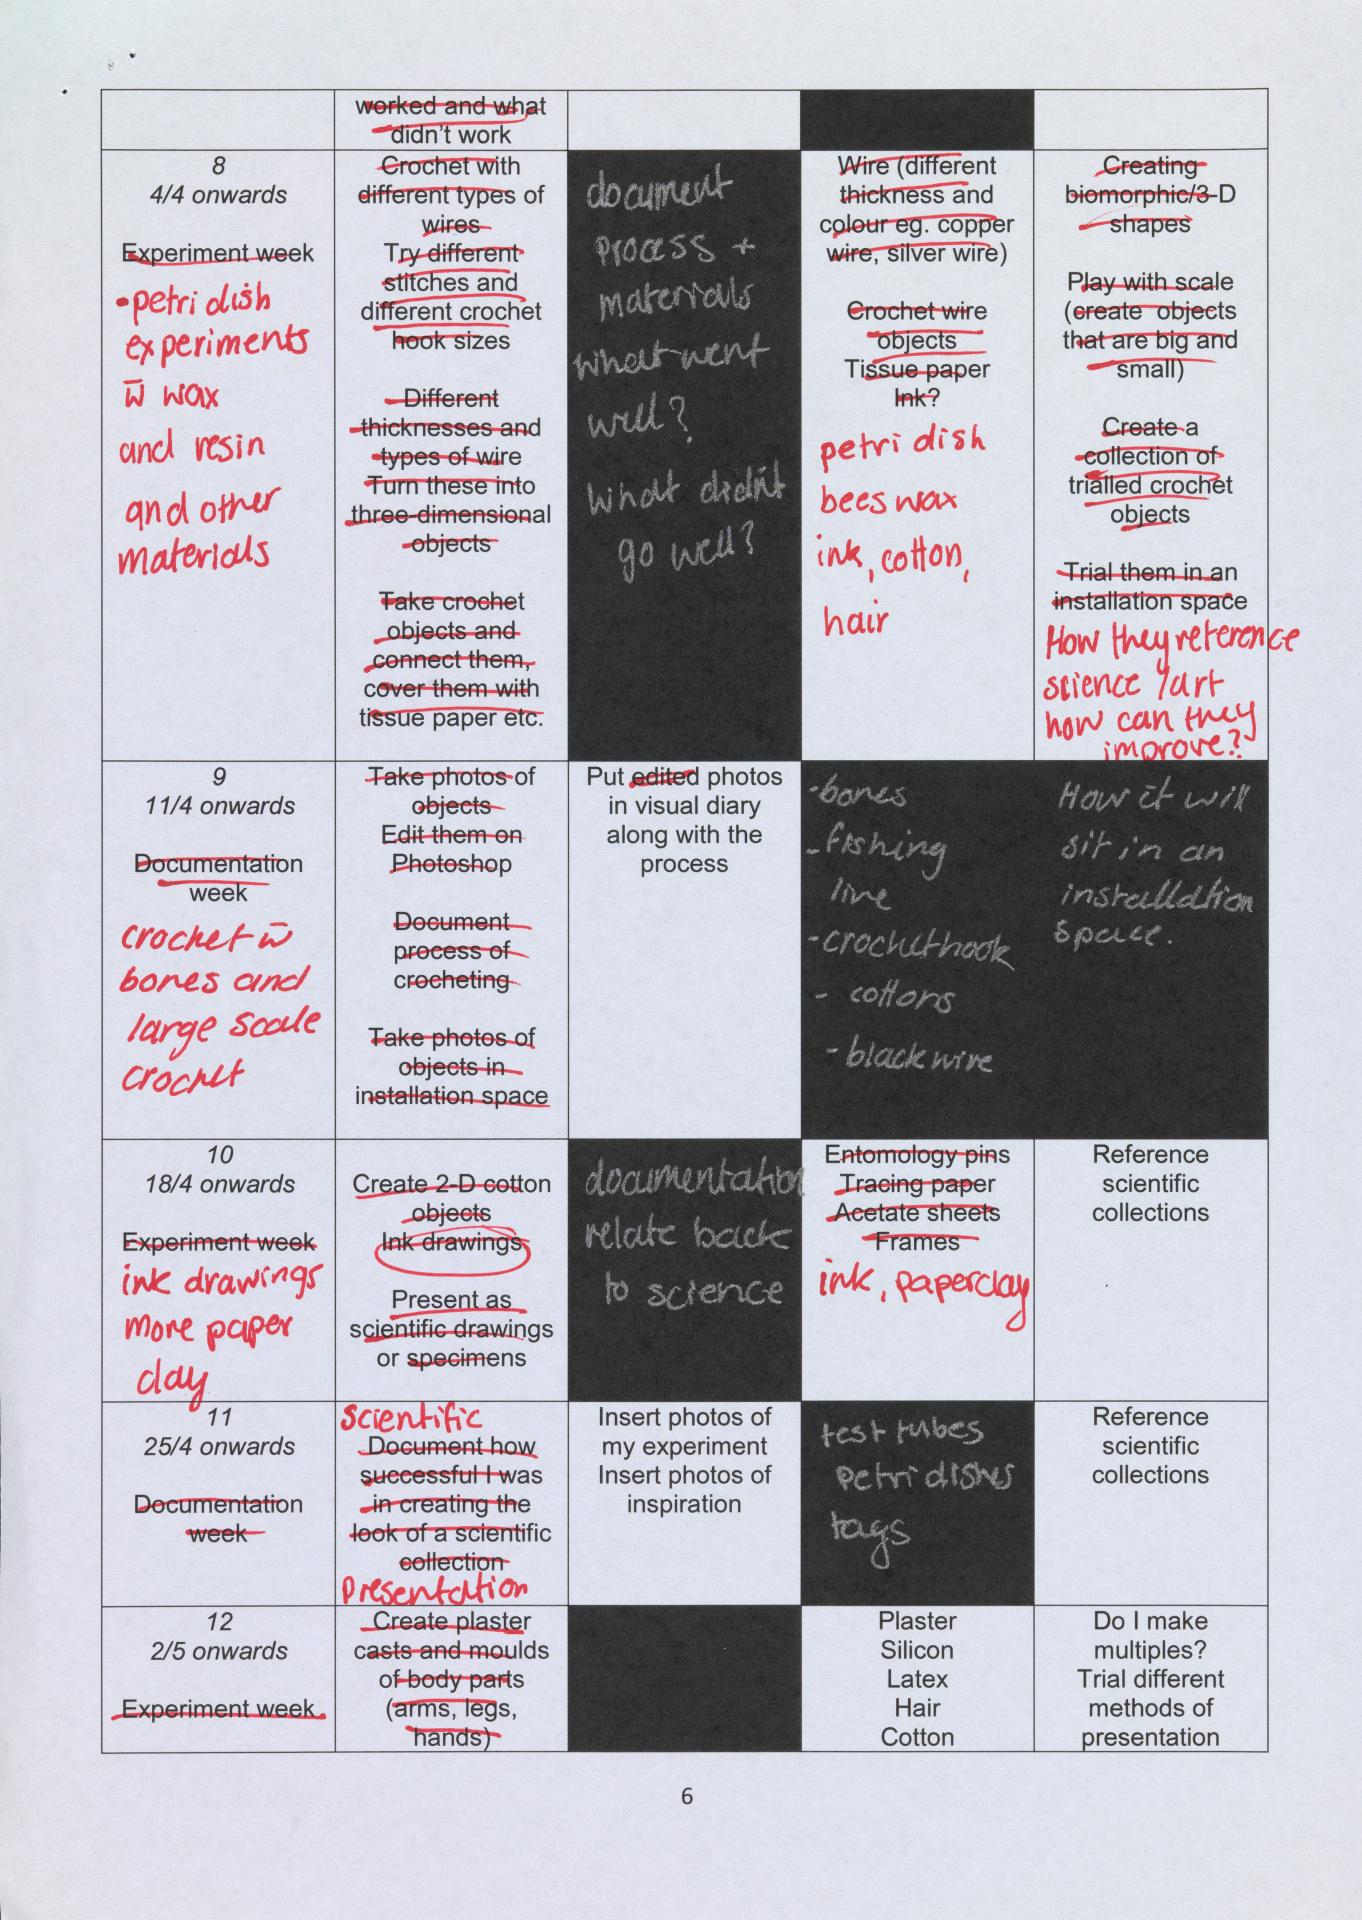 worked and what
didn't work
8
4/4 onwards
Experiment week
•petri dish
experiments
w̄ wax
and resin
and other
materials
Crochet with
different types of
wires
Try different
stitches and
different crochet
hook sizes
Different
thicknesses and
types of wire
Turn these into
three-dimensional
objects
Take crochet
objects and
connect them,
cover them with
tissue paper etc.
document
process +
materials
what went
well?
What didn't
go well?
Wire (different
thickness and
colour eg. copper
wire, silver wire)
Crochet wire
objects
Tissue paper
Ink?
petri dish
bees wax
ink, cotton,
hair
Creating
biomorphic/3-D
shapes
Play with scale
(create objects
that are big and
small)
Create a
collection of
trialled crochet
objects
Trial them in an
installation space
How they reference
science /art
how can they
improve?
9
11/4 onwards
Documentation
week
crochet w̄
bones and
large scale
crochet
Take photos of
objects
Edit them on
Photoshop
Document
process of
crocheting
Take photos of
objects in
installation space
Put edited photos
in visual diary
along with the
process
-bones
-fishing
line
-crochet hook
- cottons
- black wire
How it will
sit in an
installation
space.
10
18/4 onwards
Experiment week
ink drawings
more paper
clay
Create 2-D cotton
objects
Ink drawings
Present as
scientific drawings
or specimens
documentation
relate back
to science
Entomology pins
Tracing paper
Acetate sheets
Frames
ink, paperclay
Reference
scientific
collections
11
25/4 onwards
Documentation
week
Scientific
Document how
successful I was
in creating the
look of a scientific
collection
Presentation
Insert photos of
my experiment
Insert photos of
inspiration
test tubes
petri dishes
tags
Reference
scientific
collections
12
2/5 onwards
Experiment week
Create plaster
casts and moulds
of body parts
(arms, legs,
hands)
Plaster
Silicon
Latex
Hair
Cotton
Do I make
multiples?
Trial different
methods of
presentation
6